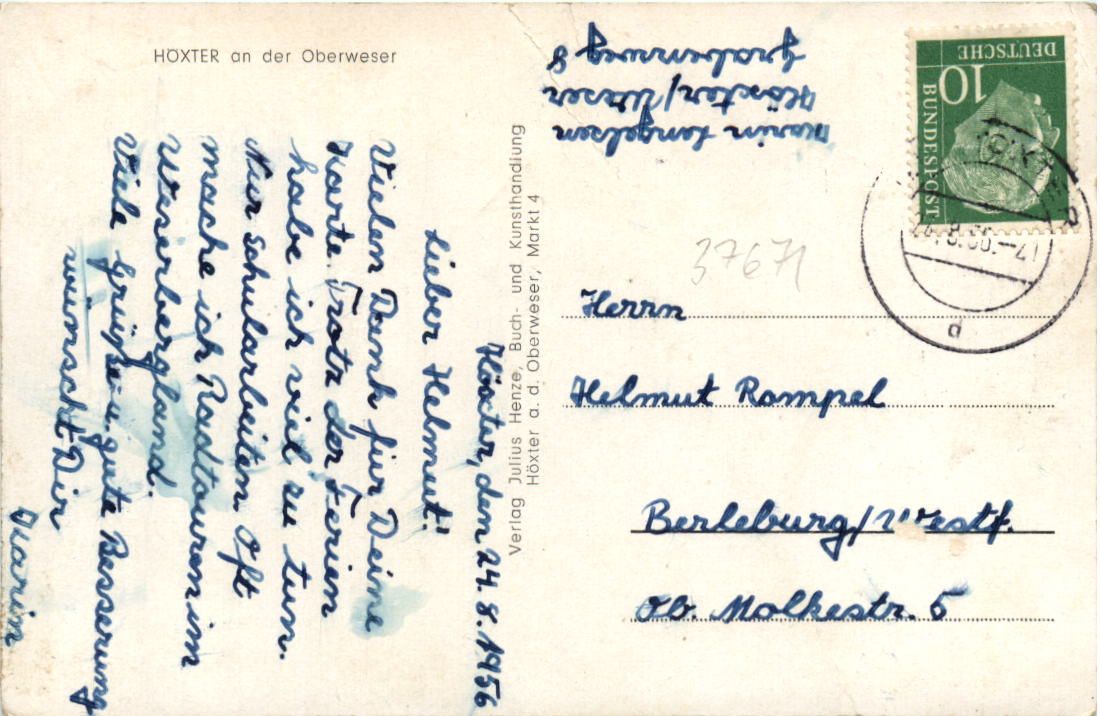 HÖXTER an der Oberweser
Höxter, den 24.8.1956
Lieber Helmut!
Vielen Dank für Deine
Karte. Trotz der Ferien
habe ich viel zu tun.
Nur Schularbeiten. Oft
mache ich Radtouren im
Weserbergland.
Viele Grüße u. gute Besserung
wünscht Dir
Marin
Verlag Julius Henze, Buch- und Kunsthandlung
Höxter a. d. Oberweser, Markt 4
Marin Langelsen
Höxter/Weser
Grabenweg 8
DEUTSCHE
10
BUNDESPOST
HÖXTER
24.8.56.–21
d
37671
Herrn
Helmut Rompel
Berleburg/Westf.
Ob. Molkestr. 5